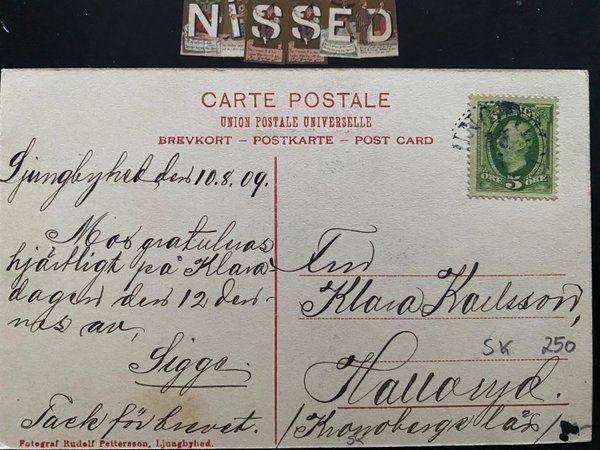 NiSSED
CARTE POSTALE
UNION POSTALE UNIVERSELLE
BREVKORT – POSTKARTE – POST CARD
SVERIGE
ÖRE 5 ÖRE
Ljungbyhed den 10.8.09.
Mor gratuleras
hjärtligt på Klara-
dagen den 12 den-
nes av,
Sigge.
Tack för brevet.
Fotograf Rudolf Pettersson, Ljungbyhed.
Fru
Klara Karlsson,
SK 250
Hallaryd.
/Kronobergs län/